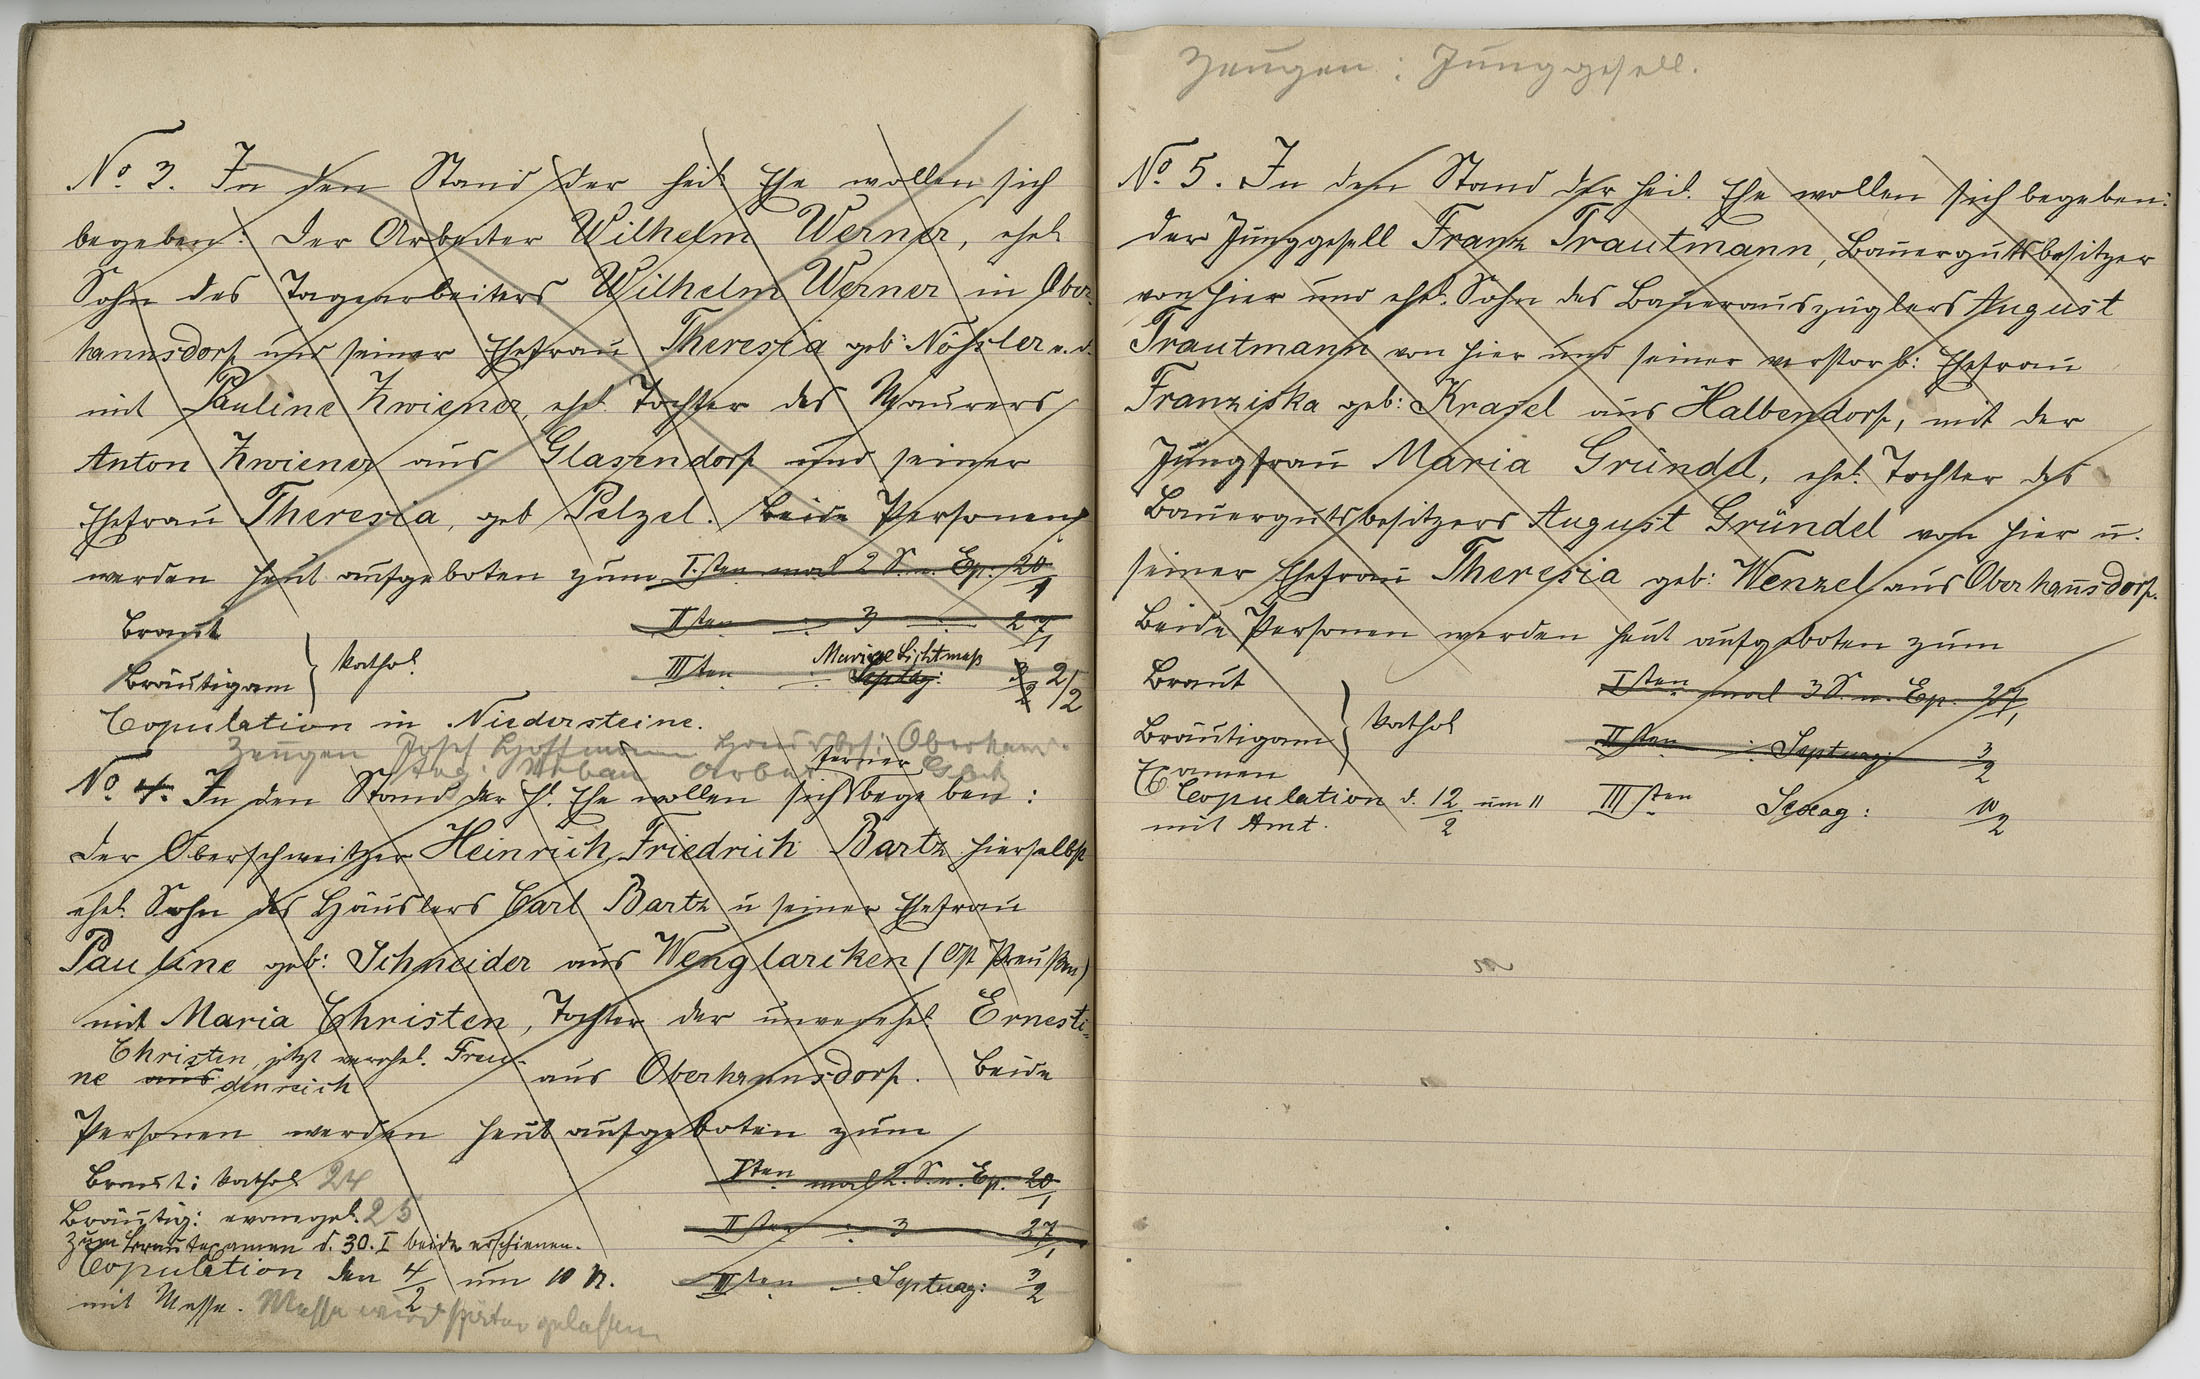 No. 3. In den Stand der heil. Ehe wollen sich
begeben: Der Arbeiter Wilhelm Werner, ehel.
Sohn des Tagearbeiters Wilhelm Werner in Ober-
hannsdorf und seiner Ehefrau Theresia geb: Nößler u. d.
mit Pauline Zwiener, ehel. Tochter des Maurers
Anton Zwiener aus Glasendorf und seiner
Ehefrau Theresia, geb Pelzel. Beide Personen
werden heut aufgeboten zum I.sten mal 2 S. n. Ep. 20/1
IIsten 3 27/1
Braut
Bräutigam } kathol.
IIIten Mariae Lichtmeß Septuag: 3/2 2/2
Copulation in Niedersteine.
Zeugen Josef Hoffmann Oberhann.
Aug. Urban Arbei
No. 4. In den Stand der hl. Ehe wollen sich ferner begeben:
der Oberschweitzer Heinrich Friedrich Bartz hierselbst
ehel. Sohn des Häuslers Carl Bartz u seiner Ehefrau
Pauline geb: Schneider aus Wenglarcken (Ost Preußen)
mit Maria Christen, Tochter der unverehel. Ernesti-
ne aus Christen jetzt verehel. Freu-
denreich aus Oberhannsdorf. Beide
Personen werden heut aufgeboten zum
Braut: kathol. 24
Isten mal 2. S. n. Ep. 20/1
Bräutig: evangel. 25
IIsten 3 27/1
Zum Brautexamen d. 30. I beide erschienen.
Copulation den 4/2 um 10 U.
IIIsten Septuag: 3/2
mit Messe. Messe wird später gelesen
Zeugen: Junggesell.
No. 5. In den Stand der heil. Ehe wollen sich begeben:
der Junggesell Franz Trautmann, Bauergutsbesitzer
von hier und ehel. Sohn des Bauerauszüglers August
Trautmann von hier und seiner verstorb: Ehefrau
Franziska geb: Krasel aus Halbendorf, mit der
Jungfrau Maria Gründel, ehel. Tochter des
Bauergutsbesitzers August Gründel von hier u.
seiner Ehefrau Theresia geb: Wenzel aus Oberhannsdorf.
Beide Personen werden heut aufgeboten zum
Braut
Isten mal 3 S. n. Ep. 27/1
Bräutigam } kathol
IIsten Septuag: 3/2
Examen
Copulation d. 12/2 um 11
IIIsten Sexag: 10/2
mit Amt.